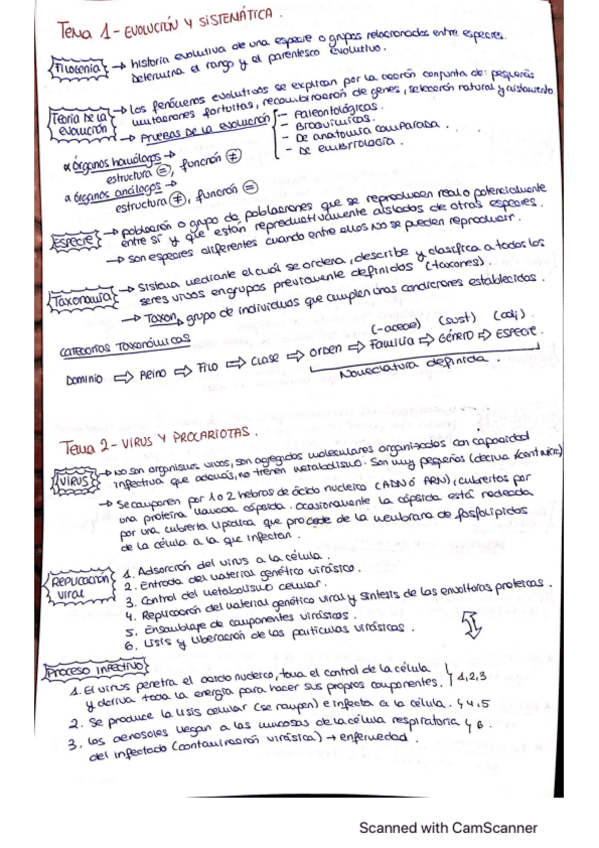 Tema 1 - EVOLUCIÓN Y SISTEMÁTICA.
Filogenia → historia evolutiva de una especie o grupos relacionados entre especies.
Determina el rango y el parentesco evolutivo.
Teoría de la evolución → Los fenómenos evolutivos se explican por la acción conjunta de: pequeñas
mutaciones fortuitas, recombinación de genes, selección natural y aislamiento
→ PRUEBAS DE LA EVOLUCIÓN
- Paleontológicas.
- Bioquímicas.
- De anatomía comparada.
- De embriología.
* órganos homólogos →
estructura =, función ≠
* órganos análogos →
estructura ≠, función =
ESPECIE → población o grupo de poblaciones que se reproducen real o potencialmente
entre sí y que están reproductivamente aislados de otras especies.
→ son especies diferentes cuando entre ellos NO se pueden reproducir.
Taxonomía → Sistema mediante el cual se ordena, describe y clasifica a todos los
seres vivos en grupos previamente definidos (taxones).
→ Taxon, grupo de individuos que cumplen unas condiciones establecidas.
CATEGORÍAS TAXONÓMICAS
(-aceae) (sust) (adj).
DOMINIO ⇒ REINO ⇒ FILO ⇒ CLASE ⇒ ORDEN ⇒ FAMILIA ⇒ GÉNERO ⇒ ESPECIE.
Nomeclatura definida.
Tema 2 - VIRUS Y PROCARIOTAS.
VIRUS → No son organismos vivos, son agregados moleculares organizados con capacidad
infectiva que además, no tienen metabolismo. Son muy pequeños
→ Se componen por 1 o 2 hebras de ácido nucleico (ADN ó ARN), cubiertos por
una proteína llamada cápsida. Ocasionalmente la cápsida está rodeada
por una cubierta lipídica que procede de la membrana de fosfolípidos
de la célula a la que infectan.
Replicación viral
1. Adsorción del virus a la célula.
2. Entrada del material genético virásico.
3. Control del metabolismo celular.
4. Replicación del material genético viral y síntesis de las envolturas proteicas.
5. Ensamblaje de componentes virásicos.
6. Lisis y liberación de las partículas virásicas.
PROCESO INFECTIVO
1. El virus penetra el ácido nucleico, toma el control de la célula
y deriva toda la energía para hacer sus propios componentes. } 1,2,3
2. Se produce la lisis celular (se rompen) e infecta a la célula. } 4 y 5
3. Los aerosoles llegan a las mucosas de la célula respiratoria } 6.
del infectado (contaminación virásica) → enfermedad.
Scanned with CamScanner